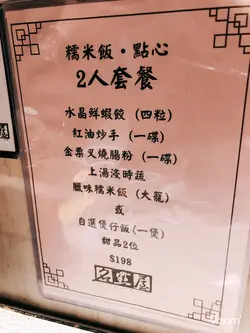 糯米飯·點心
2人套餐
水晶鮮蝦餃（四粒）
紅油炒手（一碟）
金粟叉燒腸粉（一碟）
上湯浸時蔬
臘味糯米飯（大籠）
或
自選煲仔飯（一煲）
甜品2位
$198
名點屋